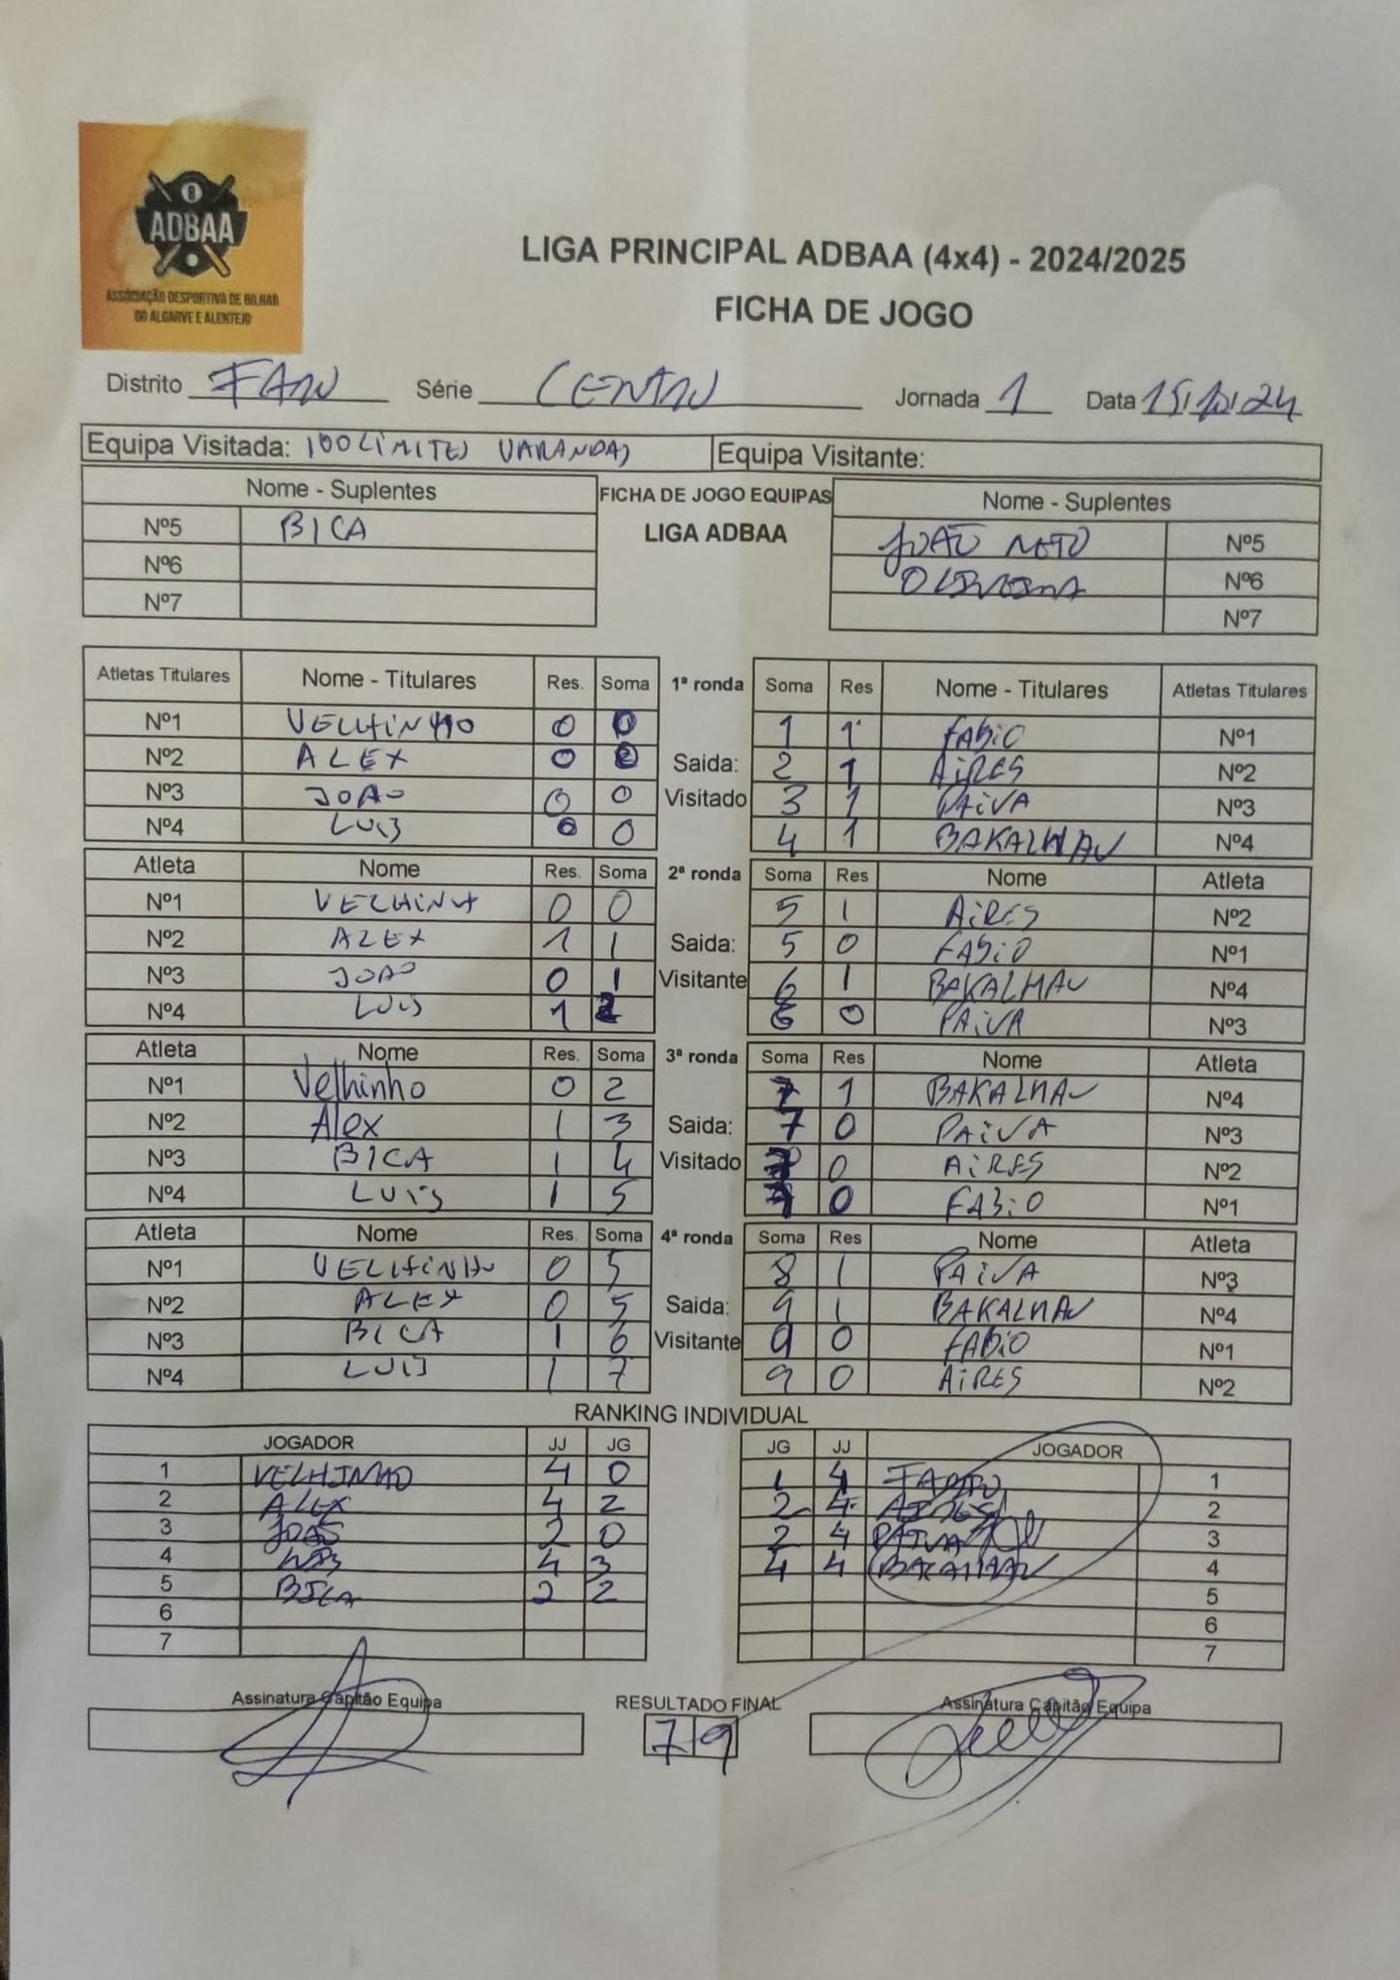 8
ADBAA
ASSOCIAÇÃO DESPORTIVA DE BILHAR
DO ALGARVE E ALENTEJO
LIGA PRINCIPAL ADBAA (4x4) - 2024/2025
FICHA DE JOGO
Distrito FARO Série CENTRO Jornada 1 Data 15/10/24
Equipa Visitada: 100LIMITES VARANDAS Equipa Visitante:
Nome - Suplentes FICHA DE JOGO EQUIPAS Nome - Suplentes
Nº5 BICA LIGA ADBAA JOÃO NETO Nº5
Nº6 OLIVEIRA Nº6
Nº7 Nº7
Atletas Titulares Nome - Titulares Res. Soma 1ª ronda Soma Res Nome - Titulares Atletas Titulares
Nº1 VELHINHO 0 0 1 1 FABIO Nº1
Nº2 ALEX 0 0 Saida: 2 1 AIRES Nº2
Nº3 JOAO 0 0 Visitado 3 1 PAIVA Nº3
Nº4 LUIS 0 0 4 1 BAKALHAU Nº4
Atleta Nome Res. Soma 2ª ronda Soma Res Nome Atleta
Nº1 VELHINHO 0 0 5 1 AIRES Nº2
Nº2 ALEX 1 1 Saida: 5 0 FABIO Nº1
Nº3 JOAO 0 1 Visitante 6 1 BAKALHAU Nº4
Nº4 LUIS 1 2 6 0 PAIVA Nº3
Atleta Nome Res. Soma 3ª ronda Soma Res Nome Atleta
Nº1 Velhinho 0 2 7 1 BAKALHAU Nº4
Nº2 Alex 1 3 Saida: 7 0 PAIVA Nº3
Nº3 BICA 1 4 Visitado 7 0 AIRES Nº2
Nº4 LUIS 1 5 7 0 FABIO Nº1
Atleta Nome Res. Soma 4ª ronda Soma Res Nome Atleta
Nº1 VELHINHO 0 5 8 1 PAIVA Nº3
Nº2 ALEX 0 5 Saida: 9 1 BAKALHAU Nº4
Nº3 BICA 1 6 Visitante 9 0 FABIO Nº1
Nº4 LUIS 1 7 9 0 AIRES Nº2
RANKING INDIVIDUAL
JOGADOR JJ JG JG JJ JOGADOR
1 VELHINHO 4 0 1 4 FABIO 1
2 ALEX 4 2 2 4 AIRES 2
3 JOAO 2 0 2 4 PAIVA 3
4 LUIS 4 3 4 4 BACALHAU 4
5 BICA 2 2 5
6 6
7 7
Assinatura Capitão Equipa RESULTADO FINAL Assinatura Capitão Equipa
7 9